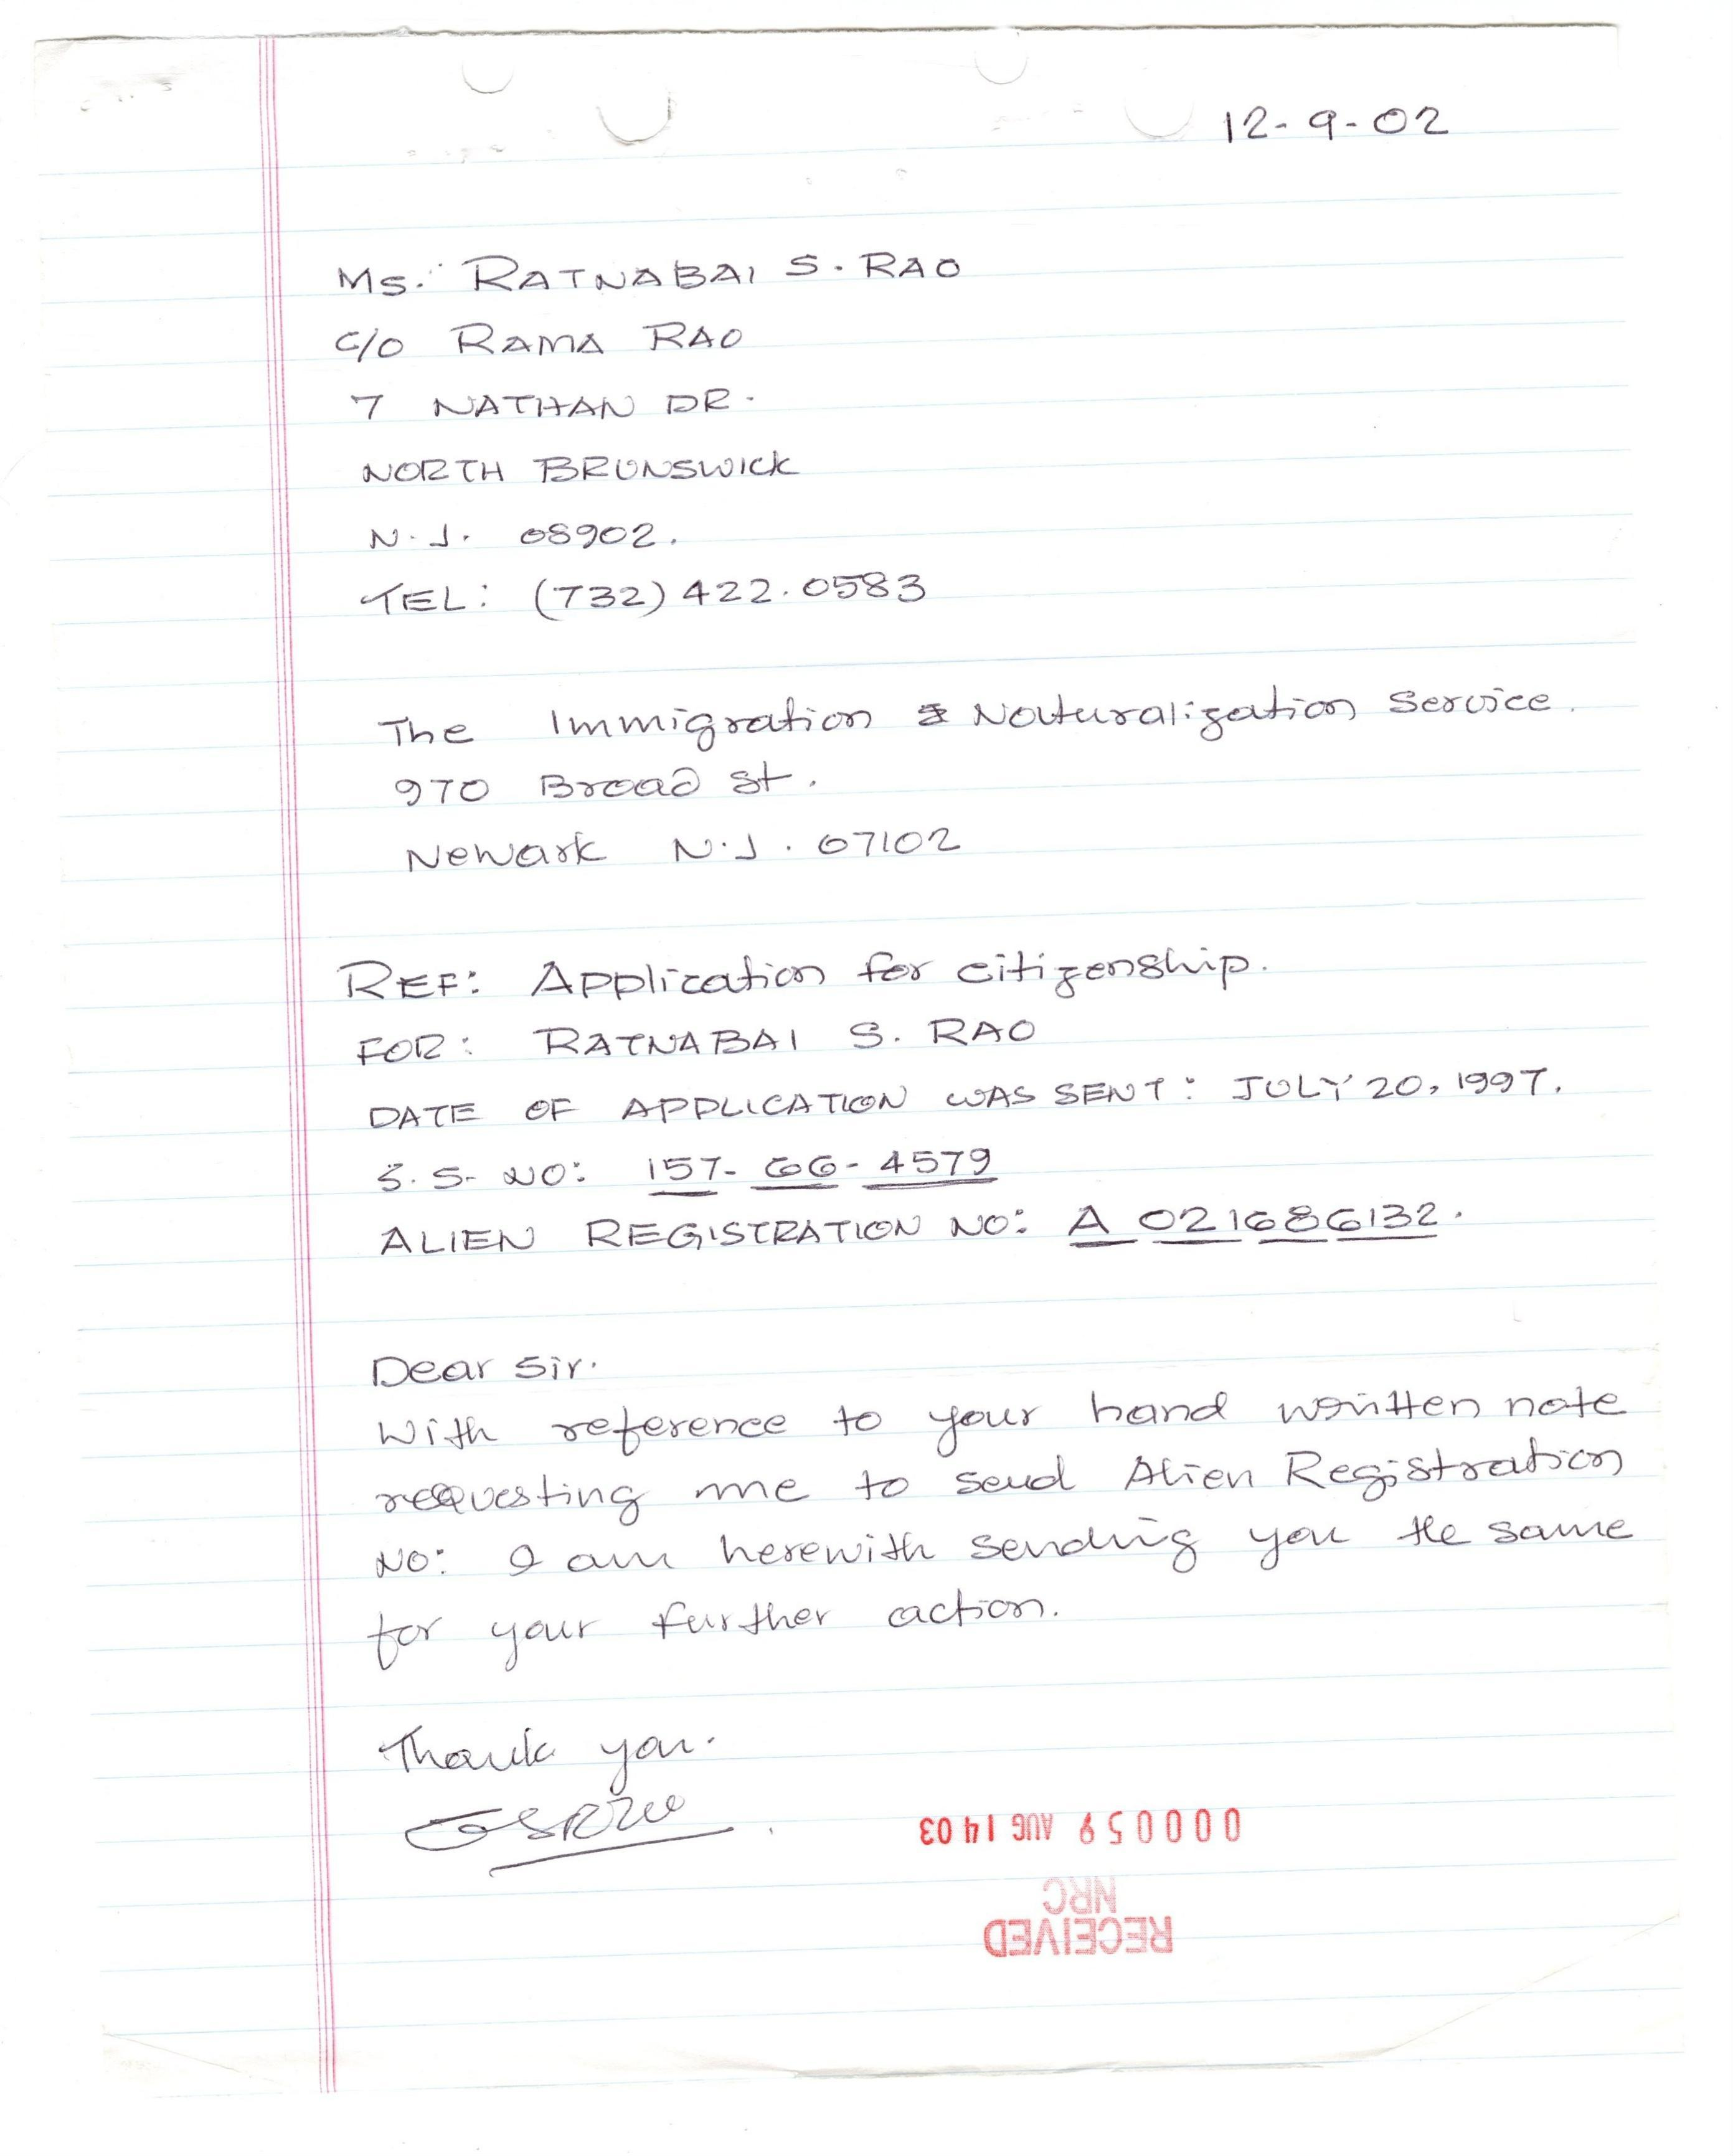 12-9-02
Ms. RATNABAI S. RAO
C/O RAMA RAO
7 NATHAN DR.
NORTH BRUNSWICK
N.J. 08902.
TEL: (732) 422.0583
The Immigration & Naturalization Service.
970 Broad St.
Newark N.J. 07102
REF: Application for citizenship.
FOR: RATNABAI S. RAO
DATE OF APPLICATION WAS SENT: JULY 20, 1997.
S.S. NO: 157-66-4579
ALIEN REGISTRATION NO: A 021686132.
Dear Sir.
With reference to your hand written note
requesting me to send Alien Registration
NO: I am herewith sending you the same
for your further action.
Thank you.
000059 AUG 14 03
NRC
RECEIVED